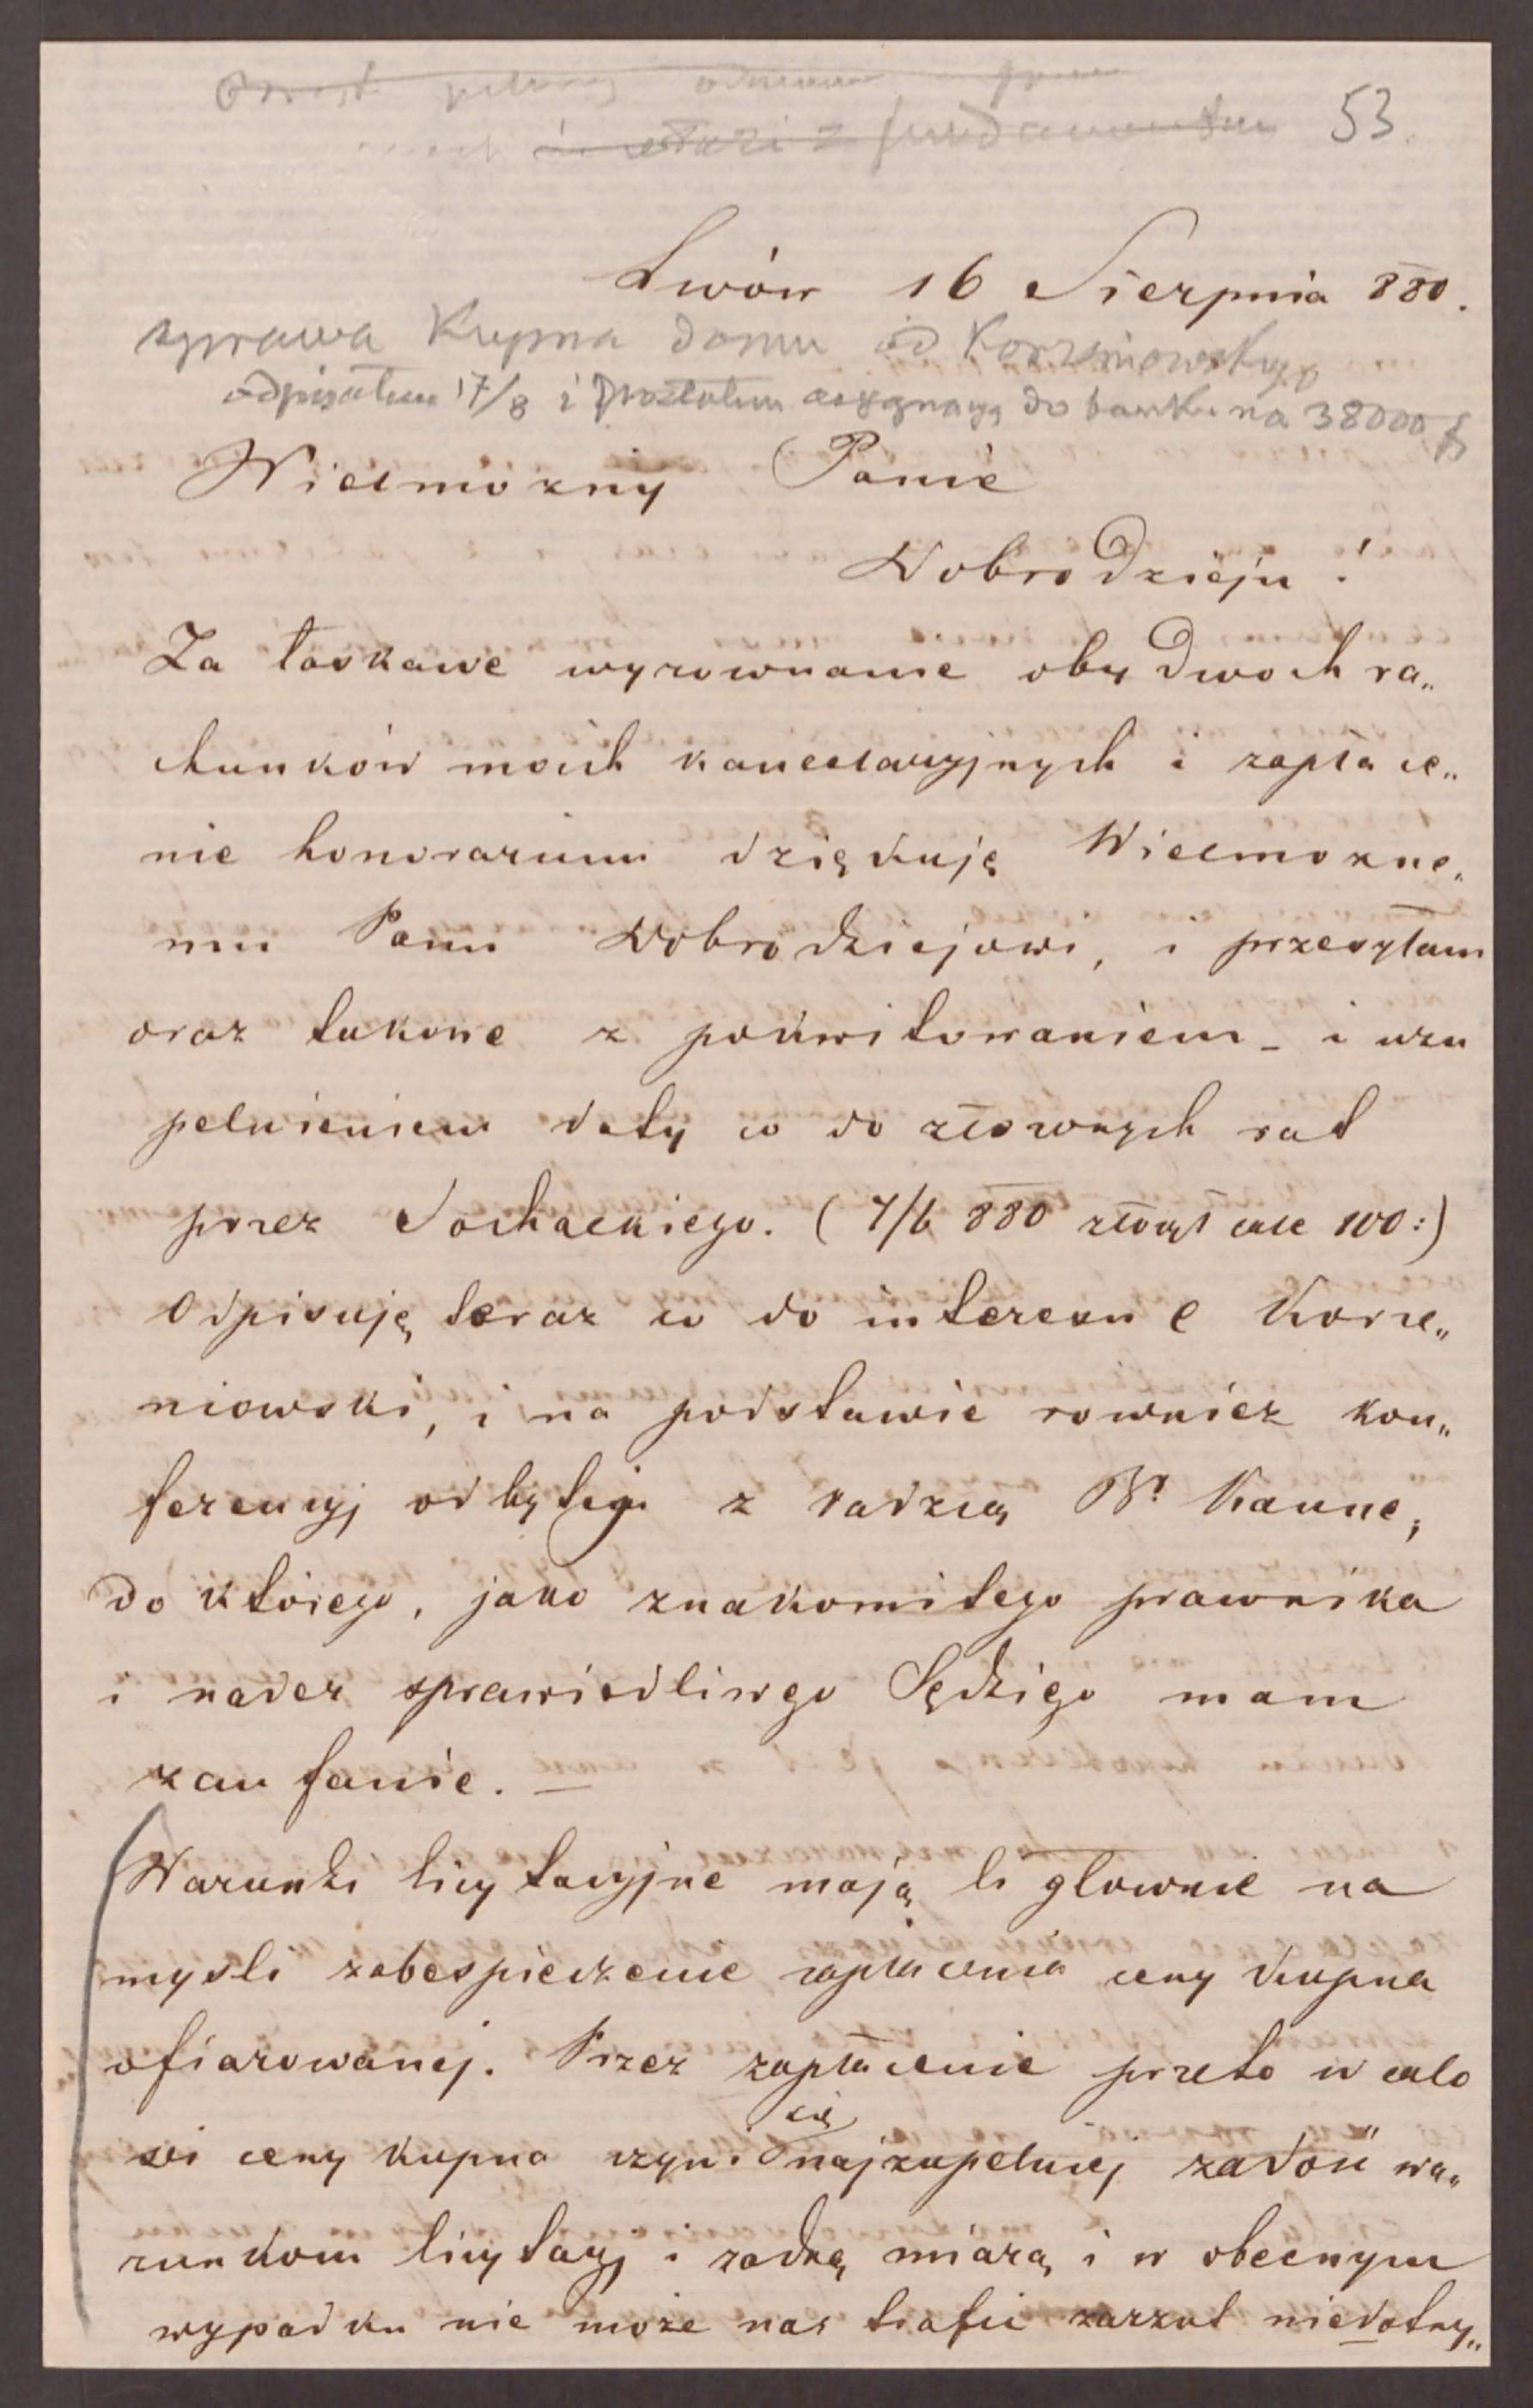 53.
Lwów 16 Sierpnia 880.
sprawa Kupna domu od Korzeniowskych
odpisałem 17/8 i posłałem asygnacyą do banku na 38000 f
Wielmożny Panie
Dobrodzieju!
Za łaskawe wyrownanie obydwoch ra„
chunków moich kancelaryjnych i zapłace„
nie honorarium dziękuję Wielmożne„
mu Panu Dobrodziejowi, i przesyłam
oraz takowe z pokwitowaniem – i uzu
pelnieniem daty co do złożonych rat
przez Sochackiego. (7/6 880 złożył całe 100:)
Odpisuję teraz co do interesu C Korze„
niowski, i na podstawie rownież kon„
ferencyj odbytej z radzcą Br Kanne,
do którego, jako znakomitego prawnika
i nader sprawiedliwgo Sędziego mam
zaufanie. —
Warunki licytacyjne mają li głownie na
mysli zabespieczenie zapłacenia ceny kupna
ofiarowanej. Przez zapłacenie przeto w calo
sci ceny kupna czyni się najzupelniej zadość wa„
runkom licytacyj i zadną miarą i w obecnym
wypadku nie może nas trafić zarzut niedotrzy„